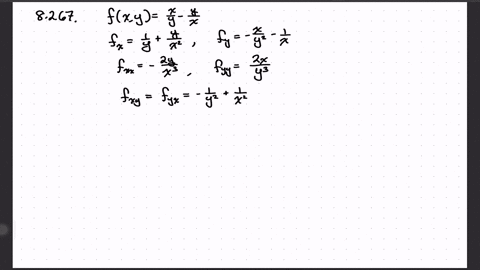 8.267. f(x,y) = x/y - y/x
f_x = 1/y + y/x², f_y = -x/y² - 1/x
f_xx = -2y/x³, f_yy = 2x/y³
f_xy = f_yx = -1/y² + 1/x²